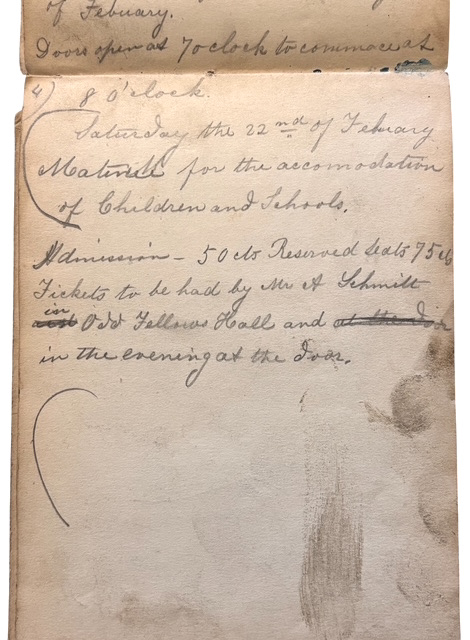 of Febuary.
Doors open at 7 oclock to commace at
4) 8 O'clock.
Saturday the 22nd of Febuary
Matinee for the accomodation
of Children and Schools.
Admission - 50 cts Reserved seats 75 cts
Tickets to be had by Mr A Schmitt
in
Odd Fellows Hall and at the door
in the evening at the door.